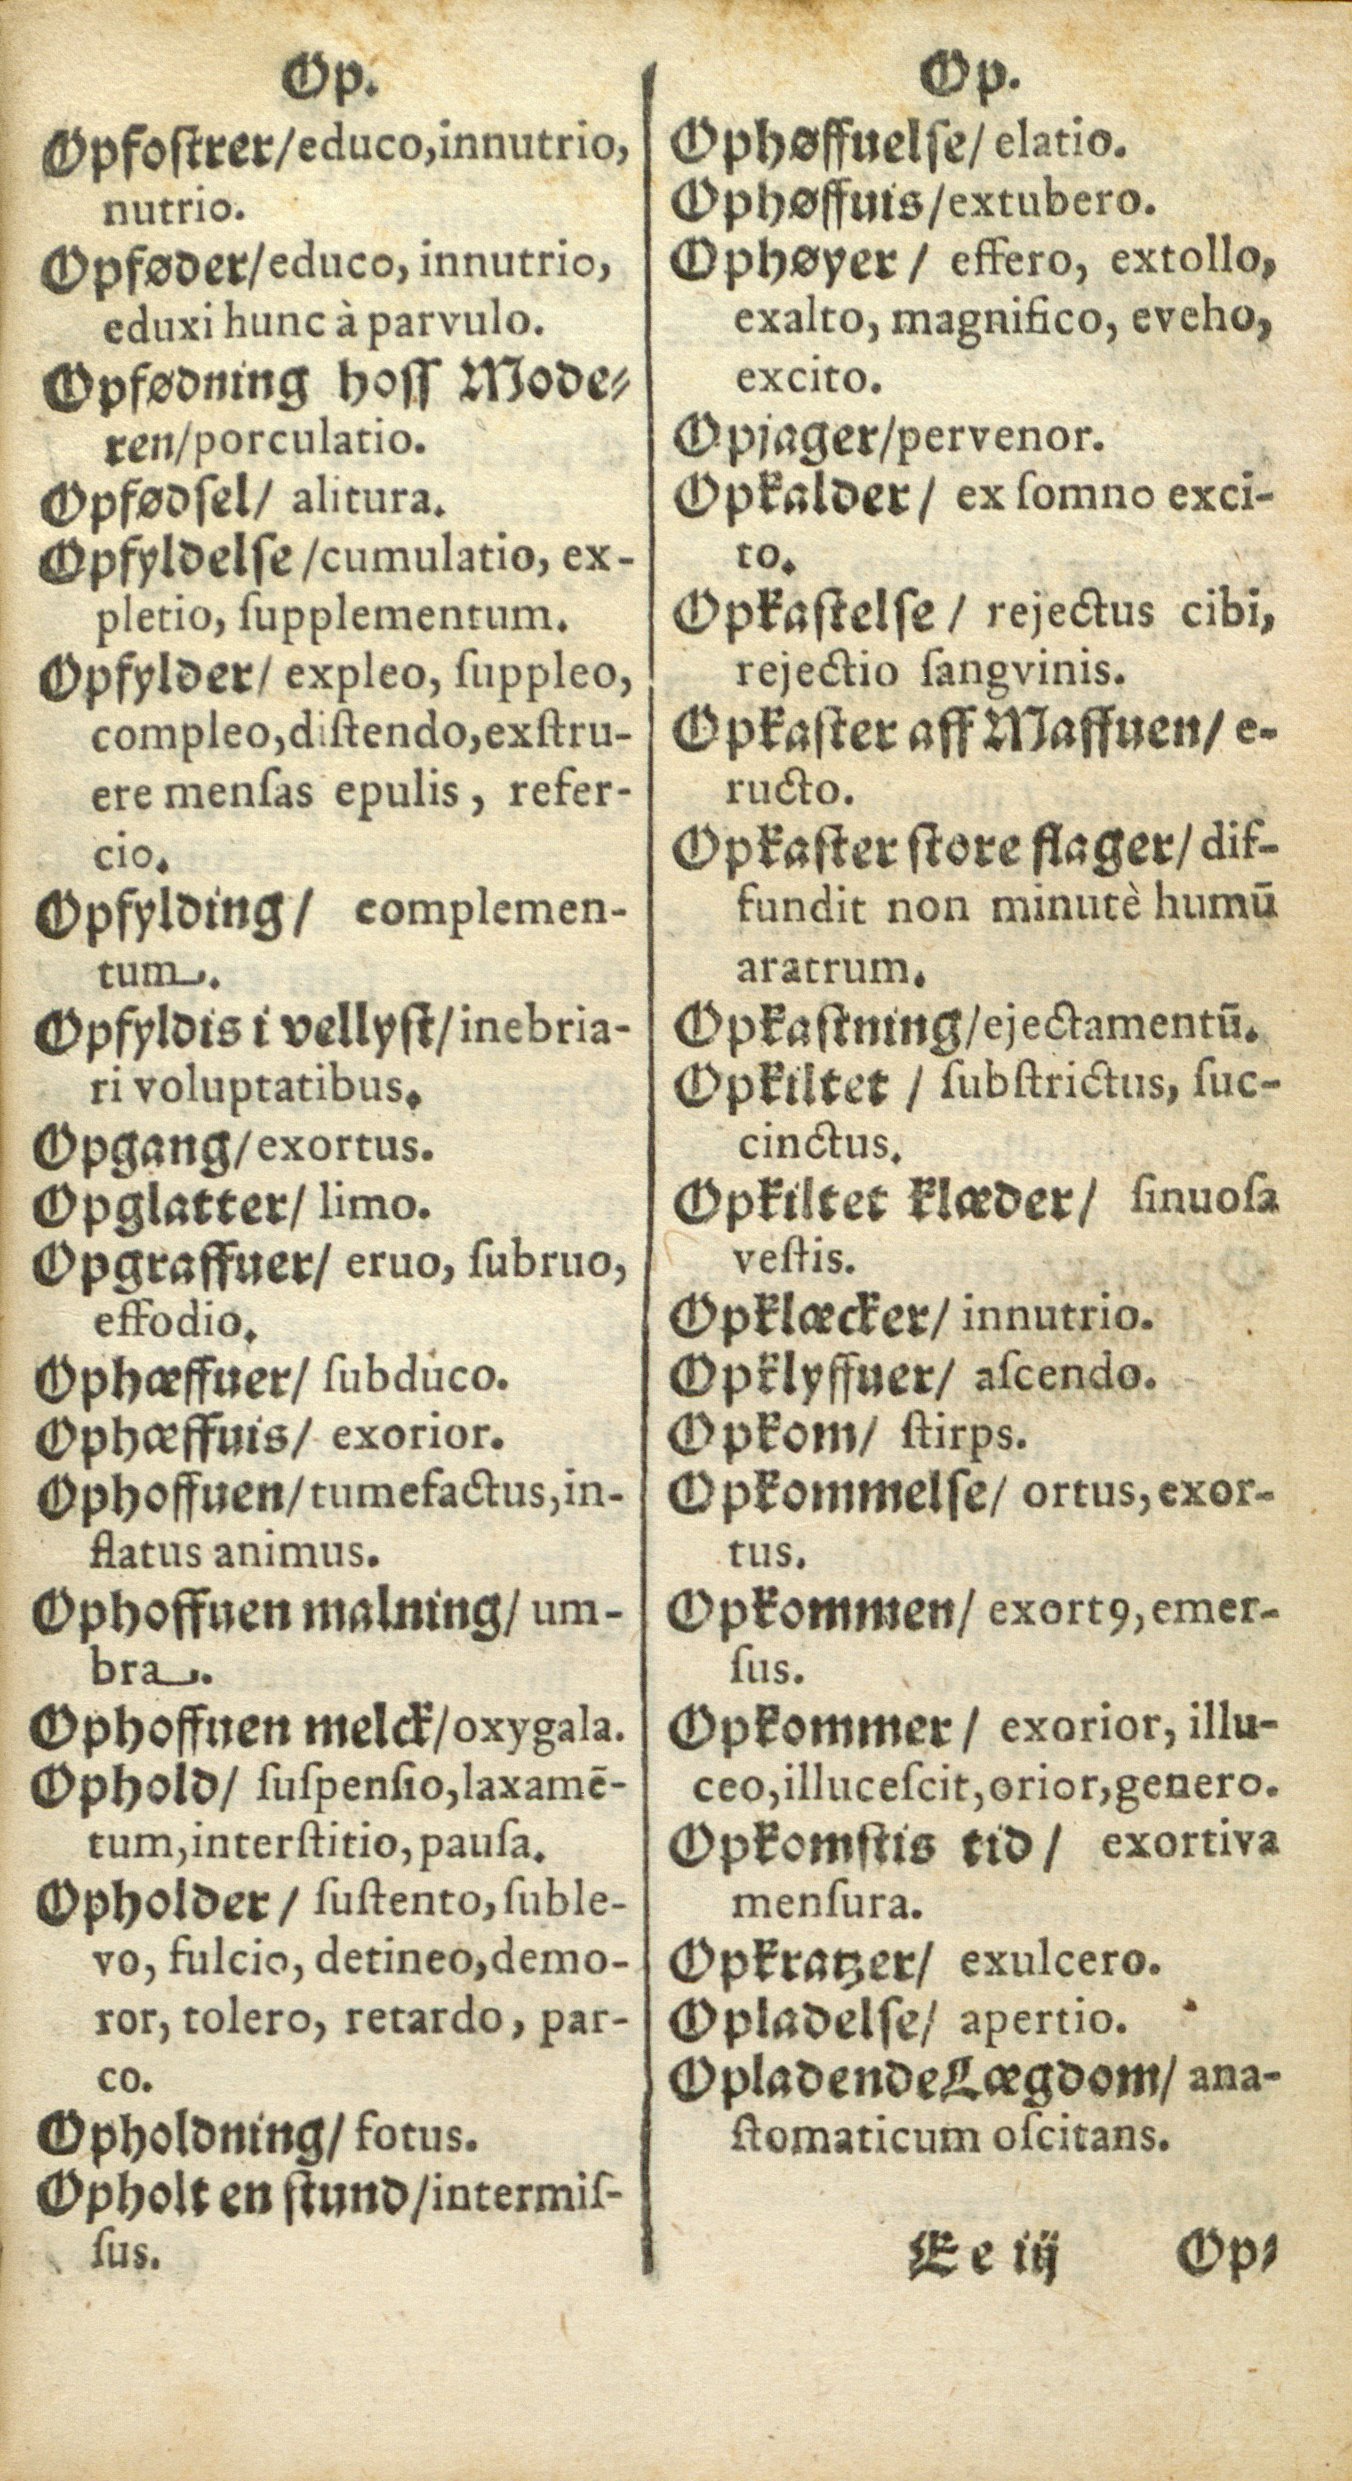 Op.
Opfoſtrer/educo,innutrio,
nutrio.
Opføder/educo, innutrio,
eduxi hunc à parvulo.
Opfødning hoſſ Mode⸗
ren/porculatio.
Opfødſel/ alitura.
Opfyldelſe/cumulatio, ex-
pletio, ſupplementum.
Opfylder/ expleo, ſuppleo,
compleo,diſtendo,exſtru-
ere menſas epulis, refer-
cio.
Opfylding/ complemen-
tum.
Opfyldis i vellyſt/inebria-
ri voluptatibus.
Opgang/exortus.
Opglatter/ limo.
Opgraffuer/ eruo, ſubruo,
effodio.
Ophæffuer/ ſubduco.
Ophæffuis/ exorior.
Ophoffuen/tumefactus,in-
flatus animus.
Ophoffuen malning/ um-
bra.
Ophoffuen melck/oxygala.
Ophold/ ſuſpenſio,laxamē-
tum,interſtitio,pauſa.
Opholder/ ſuſtento,ſuble-
vo, fulcio, detineo,demo-
ror, tolero, retardo, par-
co.
Opholdning/ fotus.
Opholt en ſtund/intermiſ-
ſus.
Op.
Ophøffuelſe/ elatio.
Ophøffuis/extubero.
Ophøyer/ effero, extollo,
exalto, magnifico, eveho,
excito.
Opjager/pervenor.
Opkalder/ ex ſomno exci-
to.
Opkaſtelſe/ rejectus cibi,
rejectio ſangvinis.
Opkaſter aff Maffuen/ e-
ructo.
Opkaſter ſtore flager/ dif-
fundit non minutè humū
aratrum.
Opkaſtning/ejectamentū.
Opkiltet / ſubſtrictus, ſuc-
cinctus.
Opkiltet klæder/ ſinuoſa
veſtis.
Opklæcker/ innutrio.
Opklyffuer/ aſcendo.
Opkom/ ſtirps.
Opkommelſe/ ortus,exor-
tus.
Opkommen/ exortꝰ,emer-
ſus.
Opkommer/ exorior, illu-
ceo,illuceſcit,orior,genero.
Opkomſtis tid/ exortiva
menſura.
Opkratzer/ exulcero.
Opladelſe/ apertio.
Opladende Lægdom/ ana-
ſtomaticum oſcitans.
Ee iij Op⸗